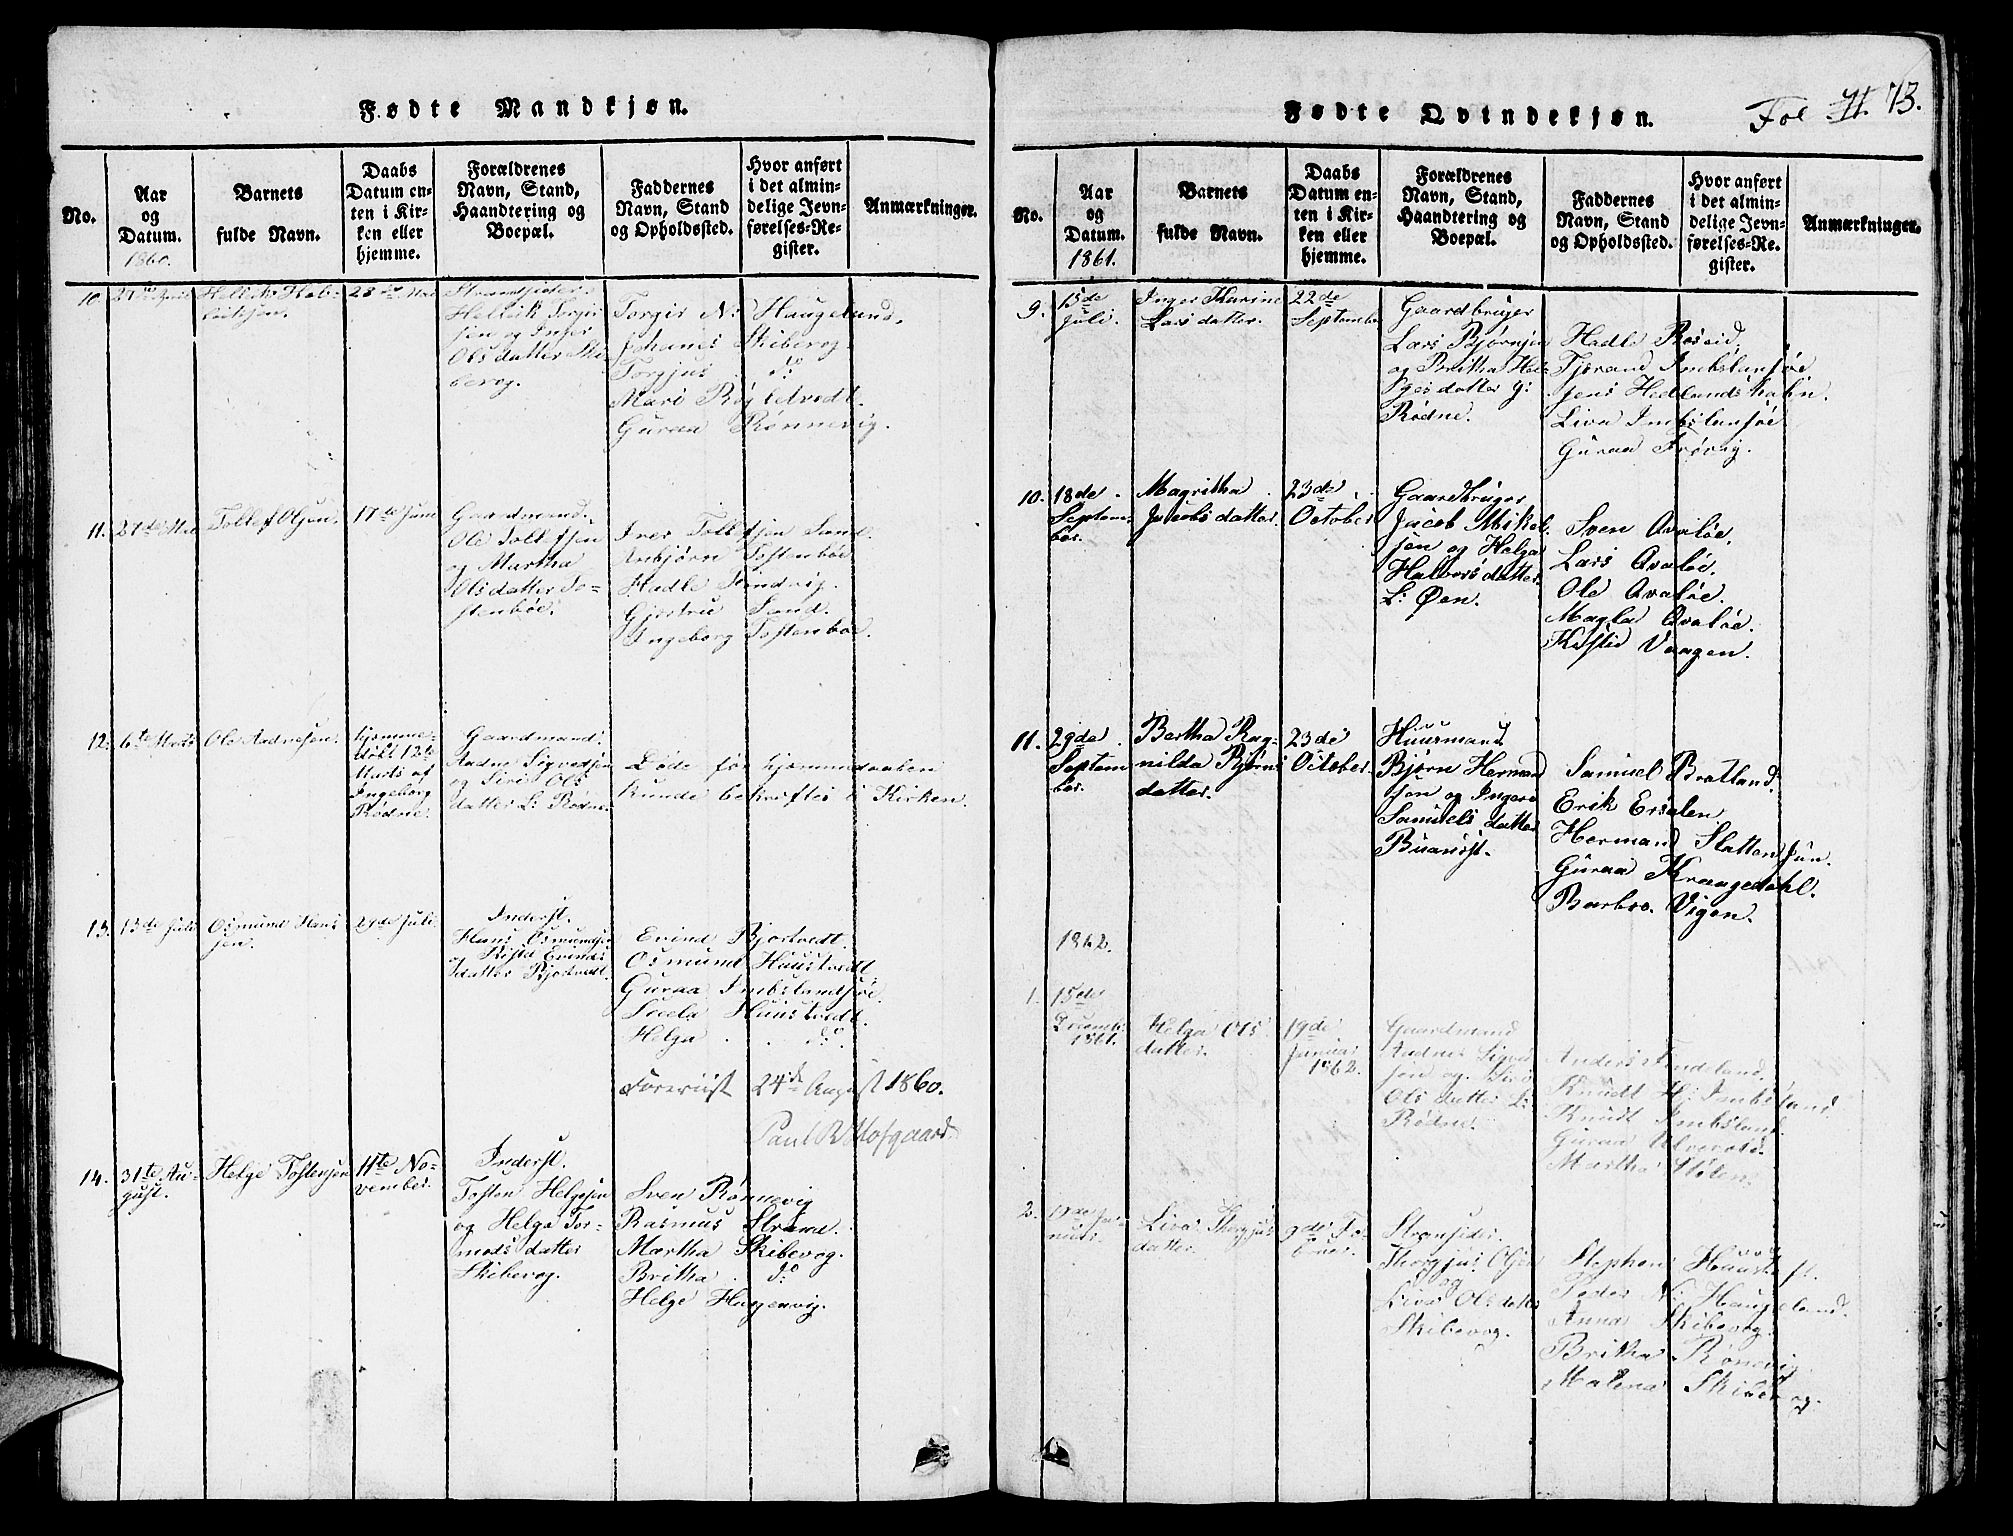 Fødte Mandkjøn.
No.
Aar
og
Datum.
1860.
Barnets
fulde Navn.
Daabs
Datum en-
ten i Kir-
ken eller
hjemme.
Forældrenes
Navn, Stand,
Haandtering og
Boepæl.
Faddernes
Navn, Stand
og Opholdssted.
Hvor anført
i det almin-
delige Jevn-
førelses-Re-
gister.
Anmærkninger.
10.
Strandsider
Helrik
sen og Inger
Olsdatter Ski-
bevog.
Torgir N: Haugeland.
Johanes Skibevog.
Torgjus do
Mari Røgeltvedt.
Guraa Rønnevig.
11.
27de Mai
Tollef Olsen.
17de Juni
Gaardmand.
Ole Tollefsen
og Martha
Olsdatter To-
stenbøe.
Iver Tollefsen Sand.
Anbjørn Tostenbøe
Hadle Tindvig.
Gjertru Sand.
Ingeborg Tostenbøe.
12.
6te Marts
Ole Aadnesen.
hjemme-
døbt 12te
Marts af
Ingeborg
Rødne.
Gaardmand.
Aadne Sigvedsen
og Siri Ols
datter L: Rødne.
Døde før hjemmedaaben
kunde bekræftes i Kirken.
13.
15de Juli
Osmund Hans
sen.
29de Juli.
Inderst.
Hans Osmundsen
og Kista Evinds
datter Bjortvedt.
Evind Bjortvedt.
Osmund Huustvedt
Guraa Imbslandsøe.
Huustvedt.
Helga do.
Foreviist 24de August 1860.
Paul B Hofgaard.
14.
31te Au-
gust.
Helge Tostensen
11te No-
vember.
Inderst.
Tosten Helgesen
og Helga Tor-
mods datter
Skibevog.
Sven Rønnevig
Rasmus Strand.
Martha Skibevog.
Britha do
Helge Haggenvig.
Fødte Qvindekjøn.
Fol 71. 73.
No.
Aar
og
Datum.
1861.
Barnets
fulde Navn.
Daabs
Datum en-
ten i Kir-
ken eller
hjemme.
Forældrenes
Navn, Stand,
Haandtering og
Boepæl.
Faddernes
Navn, Stand
og Opholdssted.
Hvor anført
i det almin-
delige Jevn-
førelses-Re-
gister.
Anmærkninger.
9.
15de
Juli.
Inger Karine
Lars datter.
22de
September
Gaardbruger
Lars Bjørnsen
og Britha Hel-
ges datter G:
Rødne.
Hadle Røseid.
Tjerand Imbslansøe
Jens Hedlandskabn.
Liva Imbslansøe
Guraa Frøvig.
10.
18de
Septem-
ber.
Magritha
Jacobs datter.
23de
October
Gaardbruger
Jacob Mikel-
sen og Helga
Halvors datter
L: Øen.
Sven Qvaløe.
Lars Qvaløe.
Ole Qvaløe.
Magla Qvaløe.
Kistie Vaagen.
11.
29de
Septem
ber.
Bertha Rag-
nilda Bjørns
datter.
23de
October.
Huusmand
Bjørn Herman
sen og Inger
Samuels datter
Buanist.
Samuel Bratland.
Erik Ersalen
Hermand Slattensuun.
Guraa Kraagedahl.
Barbro. Vigen.
1862.
1.
15de
Decemb:
1861.
Helga Ols
datter.
19de
Januar
1862.
Gaardmand
Aadne Sigved
sen og Siri
Ols datter L:
Rødne.
Anders Tindeland.
Knudt H: Imbsland.
Knudt Imbsland.
Guraa
Martha Stølen.
2.
Ja-
nuar.
Liva Thorgjus
datter.
9de Fe-
bruar.
Stransider.
Thorgjus Olsen
og
Liva Olsdatter
Skibevog.
Stephen
Peder N: Haugeland.
Anna Skibevog.
Britha Rønevig.
Malena Skibevog.